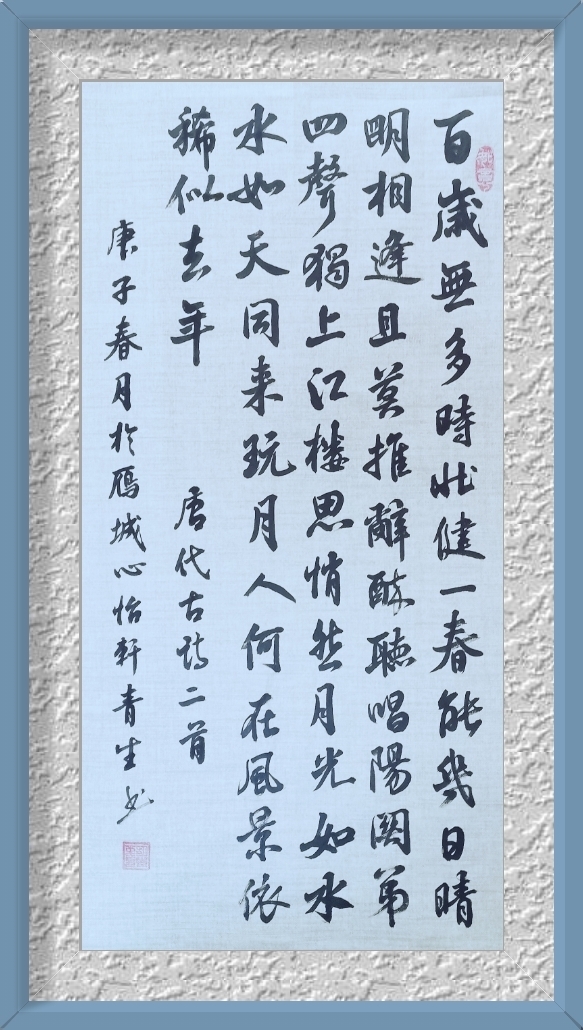 百歲無多時壯健一春能幾日晴
明相逢且莫推辭醉聽唱陽關弟
四聲獨上江樓思悄然月光如水
水如天同来玩月人何在風景依
稀似去年
唐代古詩二首
庚子春月於雁城心怡軒青生书